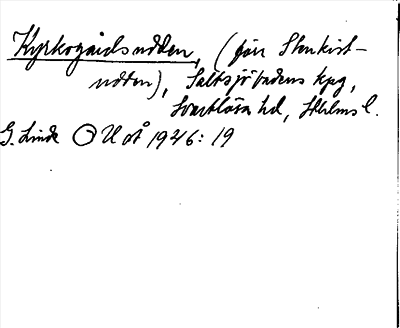 Kyrkogårdsudden, (förr Stenkist-
udden), Saltsjöbadens kpg,
Svartlösa hd, Sthlms l.
G. Linde U å 1946: 19